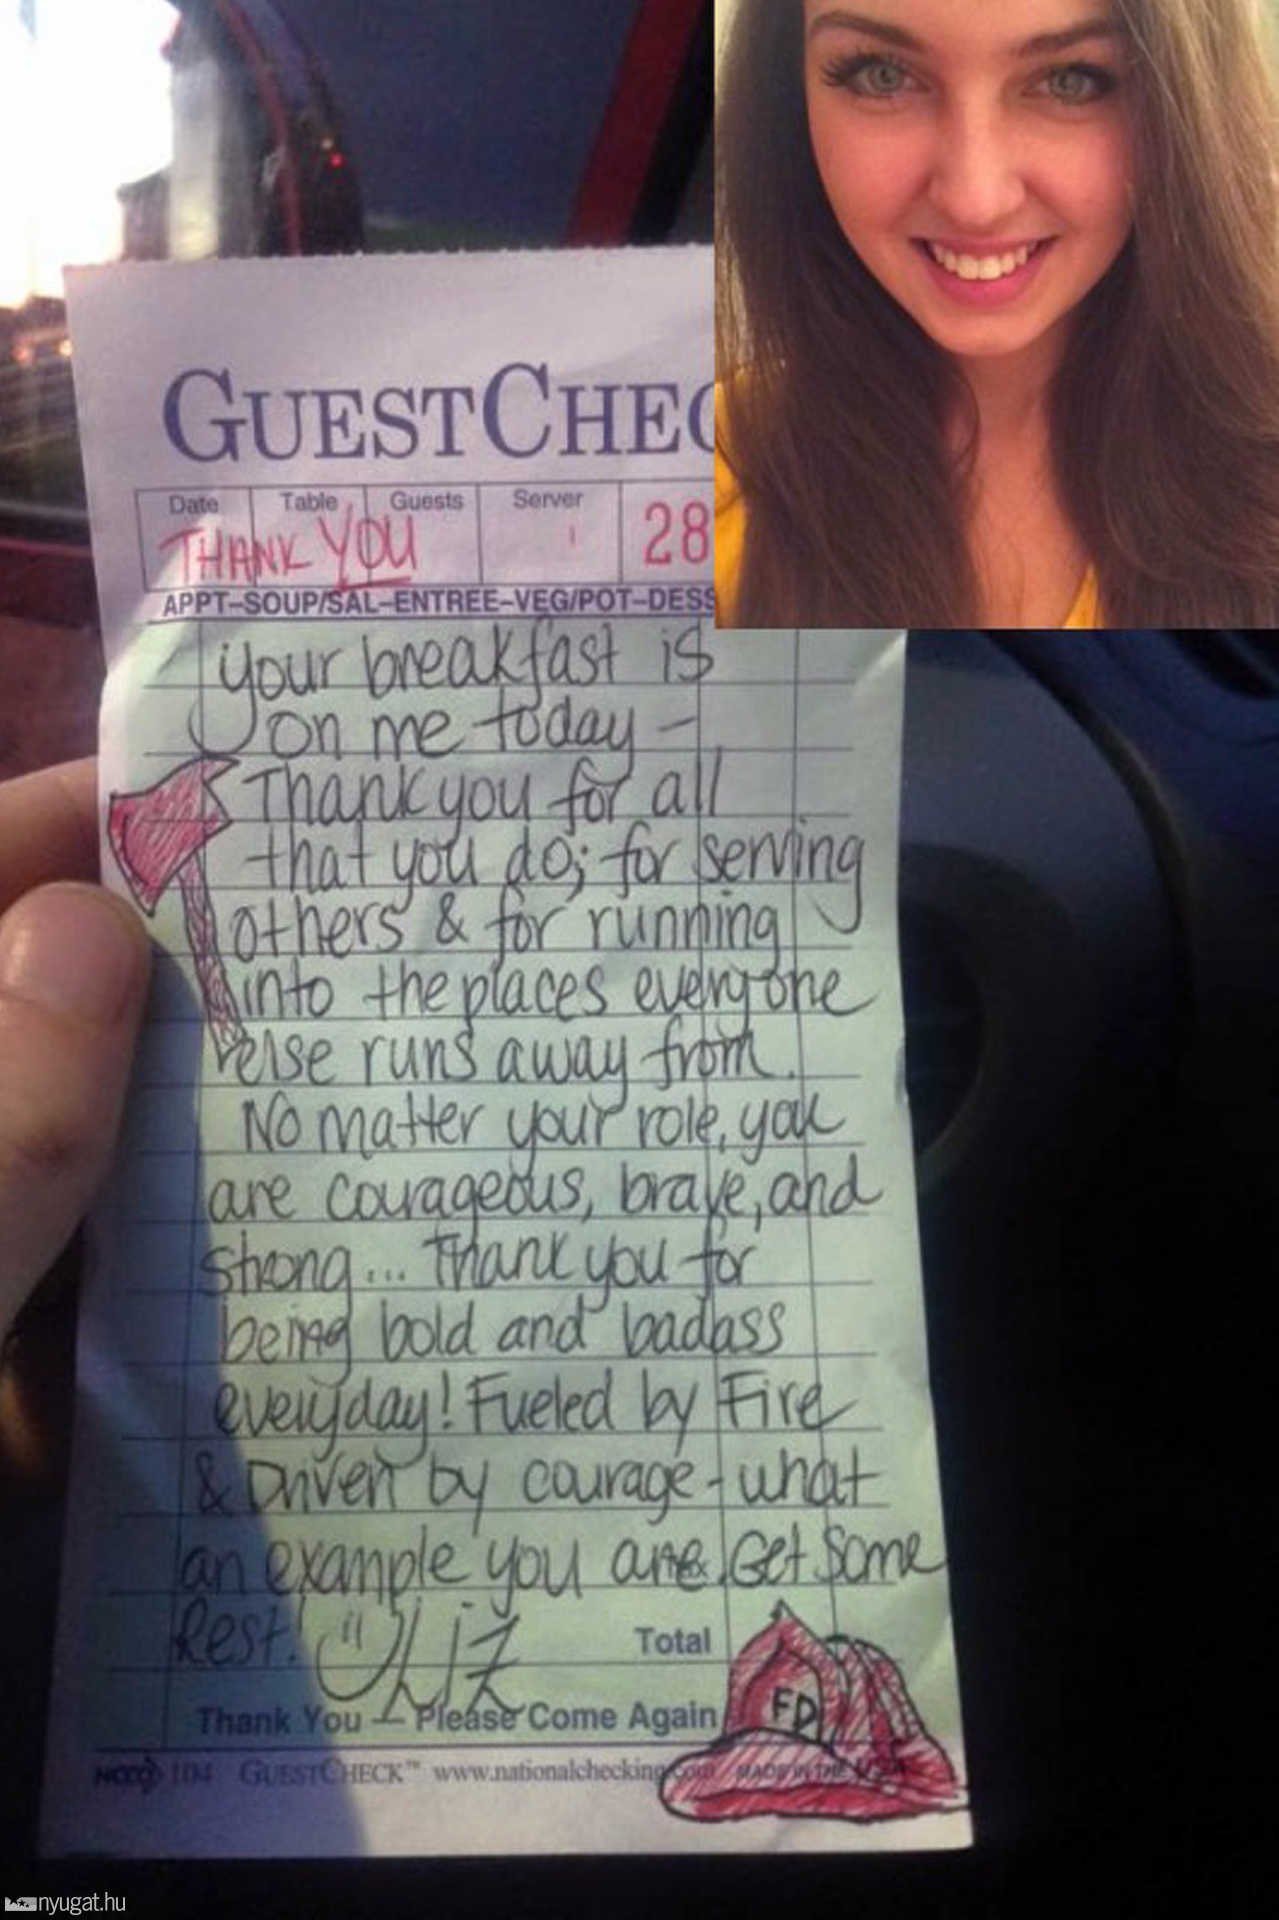 GUESTCHEC
Date Table Guests Server
THANK YOU 28
APPT–SOUP/SAL–ENTREE–VEG/POT–DESS
your breakfast is
on me today –
Thank you for all
that you do; for serving
others & for running
into the places everyone
else runs away from.
No matter your role, you
are courageous, brave, and
strong... Thank you for
being bold and badass
everyday! Fueled by Fire
& Driven by courage - what
an example you are. Get Some
Rest! Liz
Total
FD
Thank You — Please Come Again
104 GUESTCHECK™ www.nationalchecking.com MADE IN THE
nyugat.hu